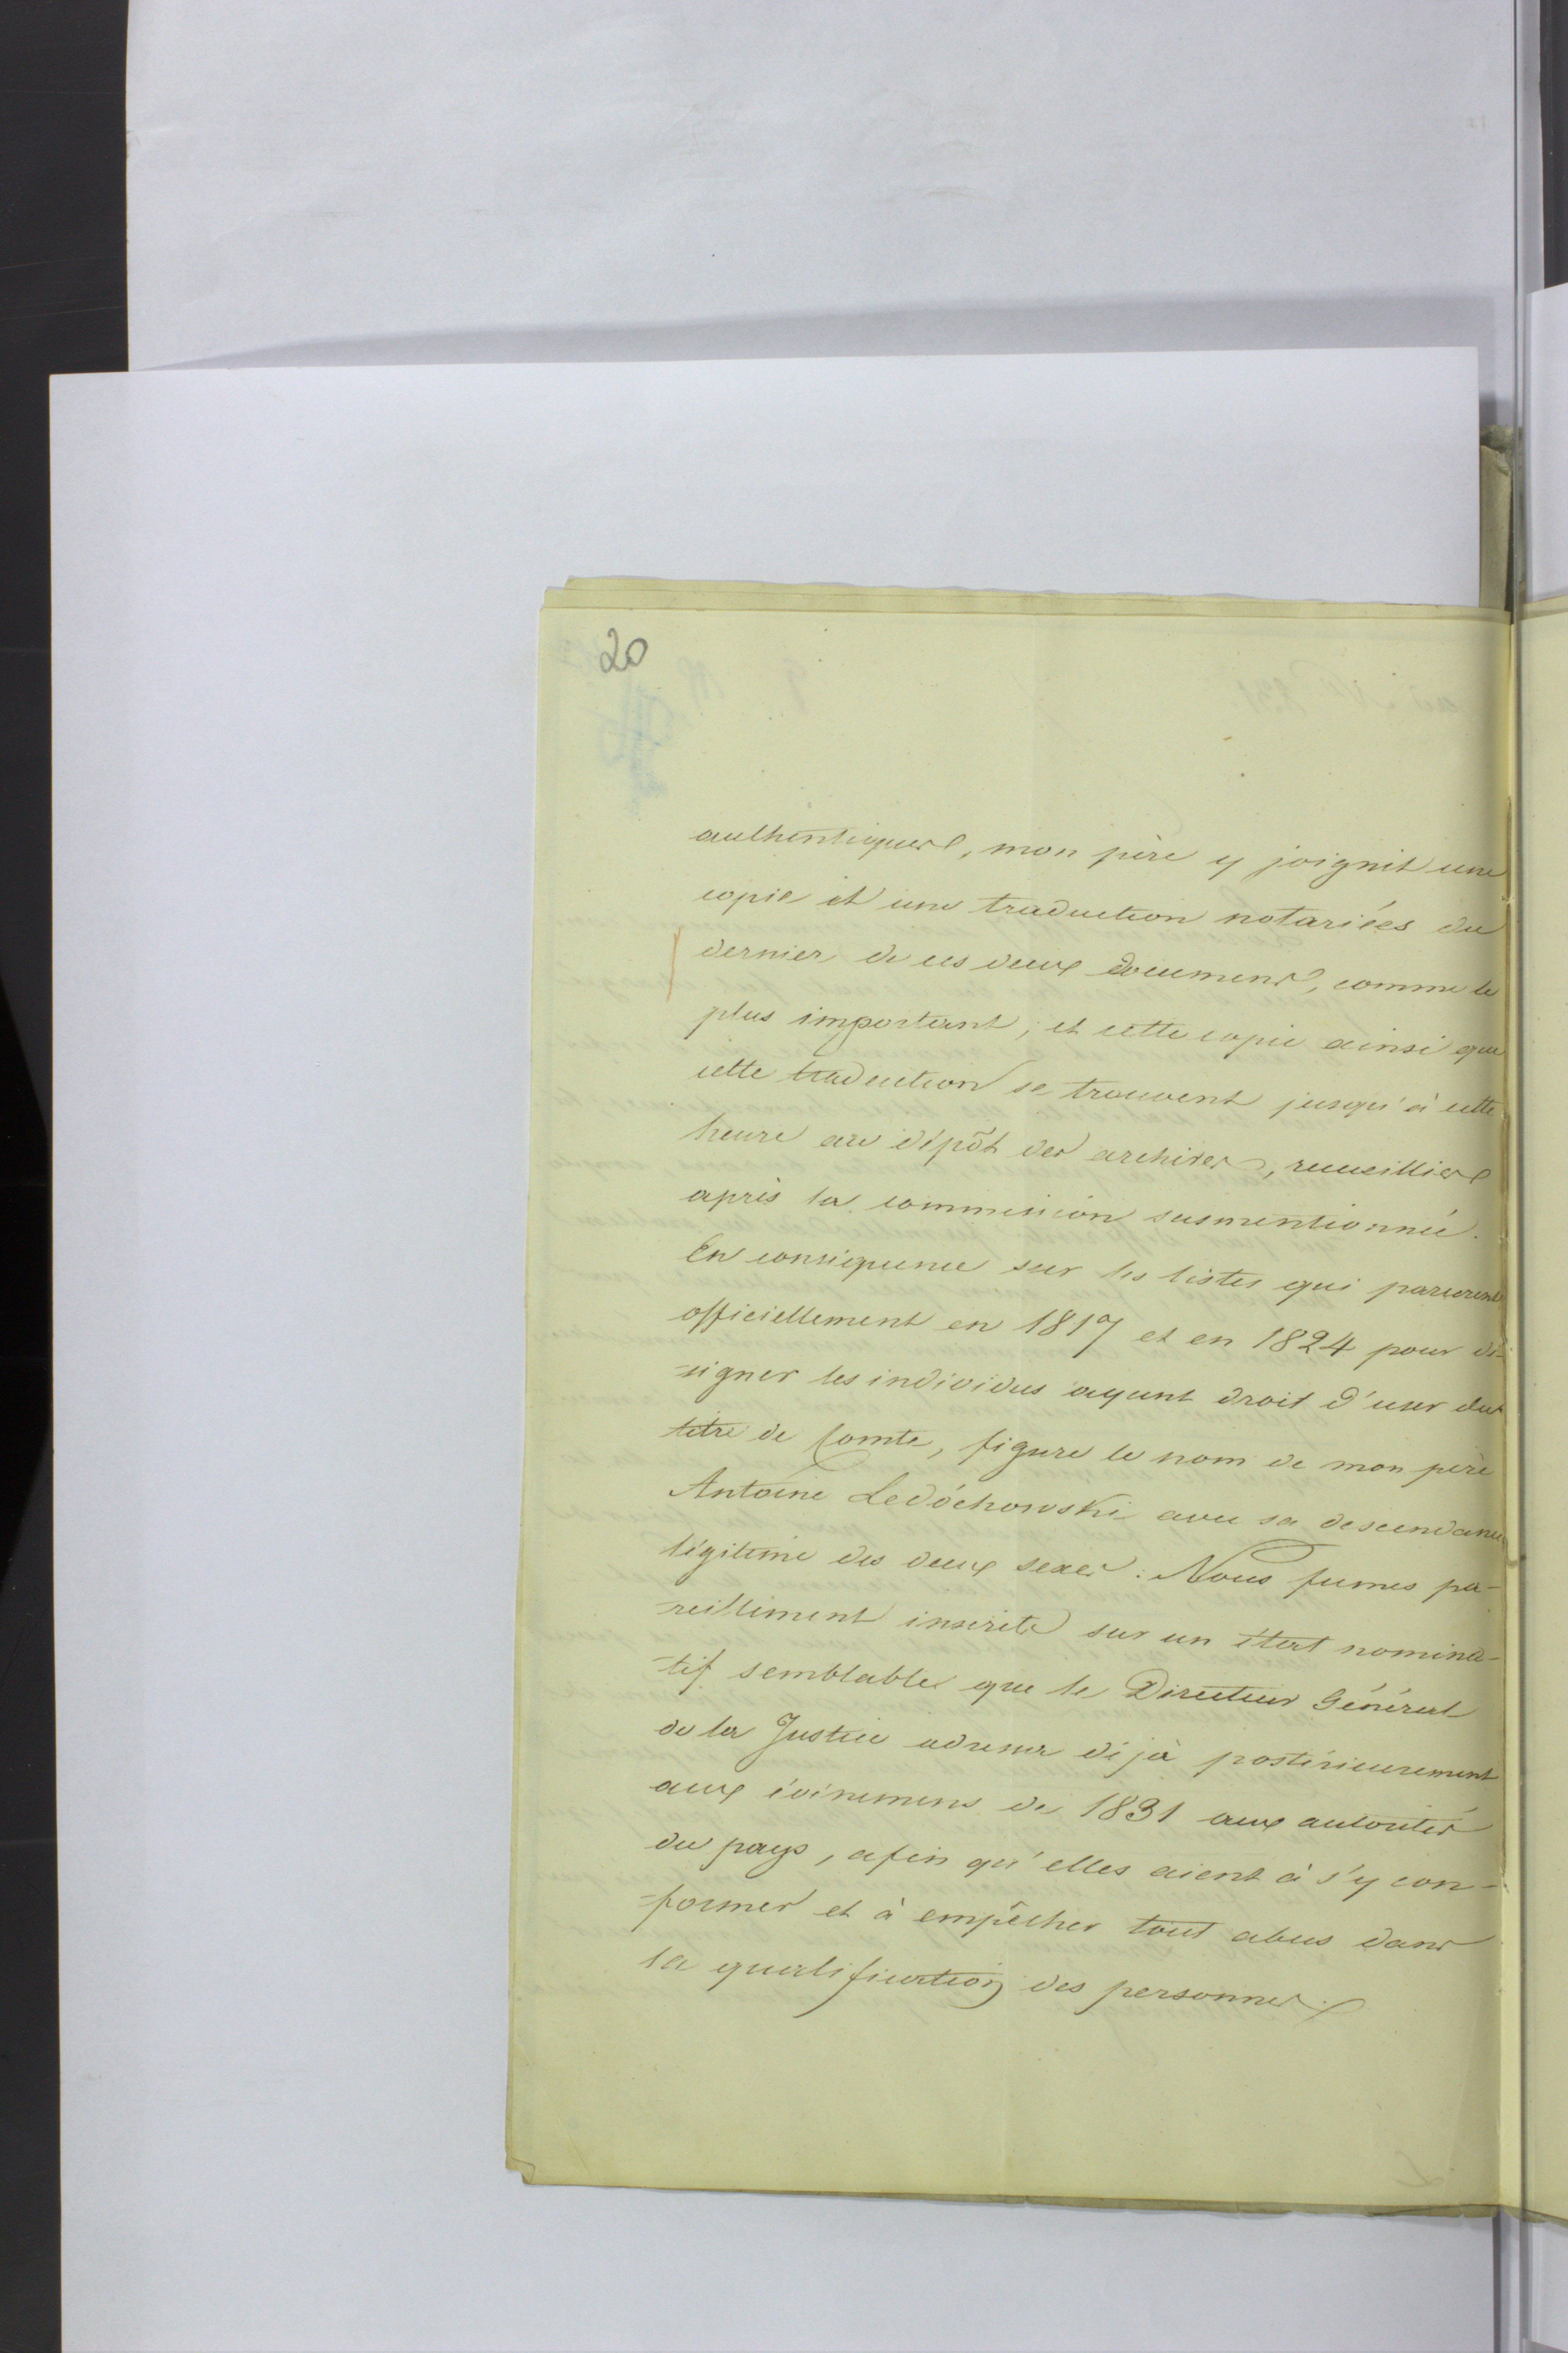 20
authentiques, mon père y joignit une
copie et une traduction notariées du
dernier de ces deux documens, comme le
plus important; et cette copie ainsi que
cette traduction se trouvent jusqu'à cette
heure au dépôt des archives, recueillies
après la commission susmentionnée.
En conséquence sur les listes qui parurent
officiellement en 1817 et en 1824 pour dé-
-signer les individus ayant droit d'user du
titre de Comte, figure le nom de mon père
Antoine Ledóchowski avec sa descendance
légitime des deux sexes. Nous fumes pa-
-reillement inscrits sur un état nomina-
-tif semblable que le Directeur Général
de la Justice adressa déjà postérieurement
aux évènemens de 1831 aux autorités
du pays, afin qu'elles aient à s'y con-
-former et à empêcher tout abus dans
la qualification des personnes.